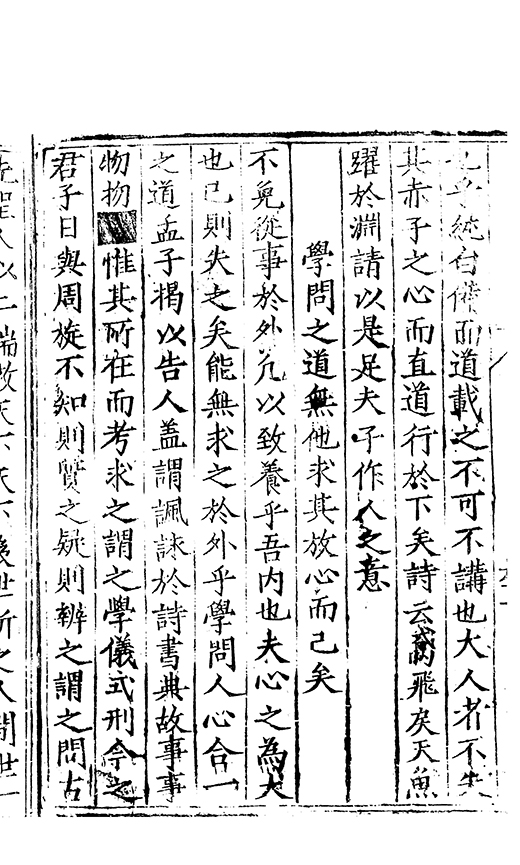 純白備而道載之不可不講也大人者不失
其赤子之心而直道行於下矣詩云鳶飛戾天魚
躍於淵請以是足夫子作人之意
學問之道無他求其放心而已矣
不免從事於外凡以致養乎吾内也夫心之為大
也已則失之矣能無求之於外乎學問人心合一
之道孟子揭以告人蓋謂諷詠於詩書典故事事
物物惟其所在而考求之謂之學儀式刑今之
君子日與周旋不知則質之疑則辨之謂之問古
先聖人以二端教天下天下後世所之人聞